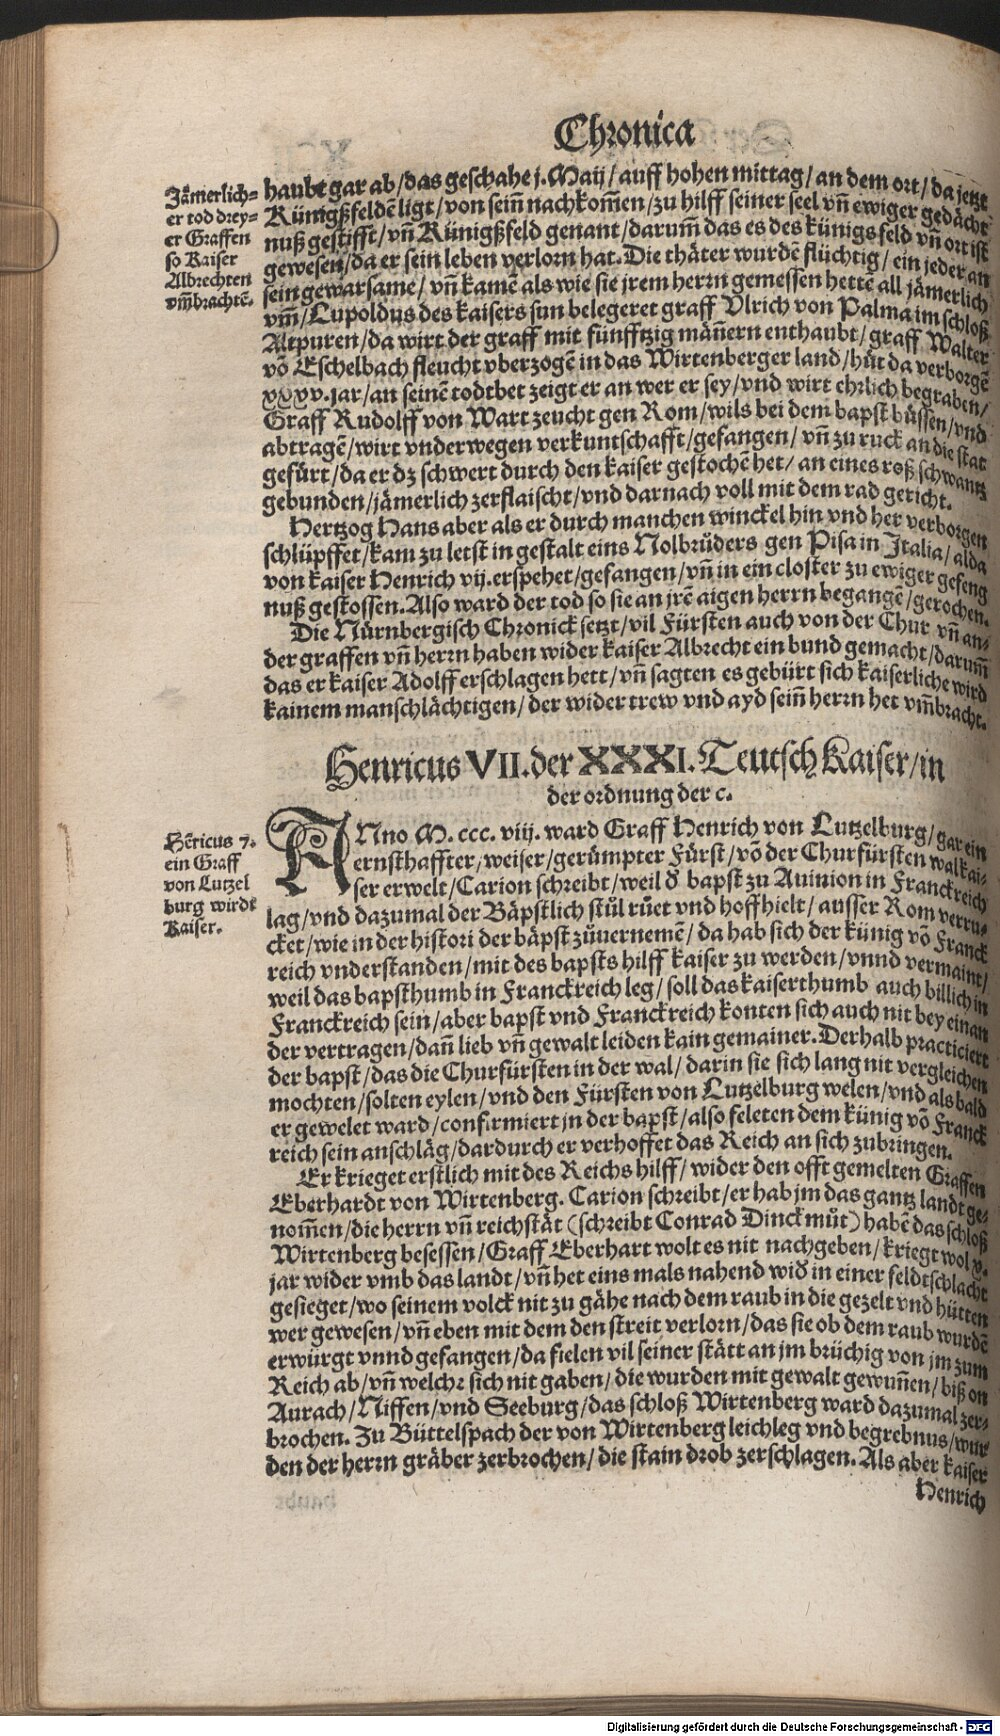 Chronica
Jåmerlich=
er tod drey=
er Graffen
so Kaiser
Albrechten
vm̃brachtẽ.
haubt gar ab/das geschahe j. Maij/auff hohen mittag/an dem ort/da jetzt
Künigßfeldẽ ligt/von sein̄ nachkom̄en/zu hilff seiner seel vn̄ ewiger gedåcht
nuß gestifft/vn̄ Künigßfeld genant/darum̄ das es des künigs feld vn̄ ort ist
gewesen/da er sein leben verlorn hat. Die thåter wurdẽ flüchtig/ein jeder an
sein gewarsame/vn̄ kamẽ als wie sie jrem herrn gemessen hettẽ all jåmerlich
vm̄/Lupoldus des kaisers sun belegeret graff Vlrich von Palma im schloß
Altpuren/da wirt der graff mit fünfftzig mån̄ern enthaubt/graff Walter
võ Eschelbach fleucht vberzogẽ in das Wirtenberger land/hůt da verborgẽ
xxxv.jar/an seinẽ todtbet zeigt er an wer er sey/vnd wirt ehrlich begraben/
Graff Rudolff von Wart zeucht gen Rom/wils bei dem bapst büssen/vnd
abtragẽ/wirt vnderwegen verkuntschafft/gefangen/vn̄ zu ruck an die stat
gefürt/da er dz schwert durch den kaiser gestochẽ het/an eines roß schwantz
gebunden/jåmerlich zerflaischt/vnd darnach voll mit dem rad gericht.
Hertzog Hans aber als er durch manchen winckel hin vnd her verborgen
schlüpffet/kam zu letst in gestalt eins Nolbrůders gen Pisa in Jtalia/alda
von kaiser Henrich vij.erspehet/gefangen/vn̄ in ein closter zu ewiger gefeng
nuß gestossen. Also ward der tod so sie an jrẽ aigen herrn begangẽ/gerochen.
Die Nürnbergisch Chronick setzt/vil Fürsten auch von der Chur vn̄ an=
der graffen vn̄ herrn haben wider kaiser Albrecht ein bund gemacht/darum̄
das er kaiser Adolff erschlagen hett/vn̄ sagten es gebürt sich kaiserliche wird
kainem manschlåchtigen/der wider trew vnd ayd sein̄ herrn het vm̄bracht.
Henricus VII. der XXXI. Teutsch Kaiser/in
der ordnung der c.
Hẽricus 7.
ein Graff
von Lutzel
burg wirdt
Kaiser.
ANno M. ccc. viij. ward Graff Henrich von Lutzelburg/gar ein
ernsthaffter/weiser/gerümpter Fürst/võ der Churfürsten wal kai=
ser erwelt/Carion schreibt/weil ď bapst zu Auinion in Franckreich
lag/vnd dazumal der Båpstlich stůl růet vnd hoff hielt/ausser Rom verru=
cket/wie in der histori der båpst zůuernemẽ/da hab sich der künig võ Franck
reich vnderstanden/mit des bapsts hilff kaiser zu werden/vnnd vermaint/
weil das bapsthumb in Franckreich leg/soll das kaiserthumb auch billich in
Franckreich sein/aber bapst vnd Franckreich konten sich auch nit bey einan
der vertragen/dan̄ lieb vn̄ gewalt leiden kain gemainer. Derhalb practiciert
der bapst/das die Churfürsten in der wal/darin sie sich lang nit vergleichen
mochten/solten eylen/vnd den Fürsten von Lutzelburg welen/vnd als bald
er gewelet ward/confirmiert jn der bapst/also feleten dem künig võ Franck
reich sein anschläg/dardurch er verhoffet das Reich an sich zubringen.
Er krieget erstlich mit des Reichs hilff/wider den offt gemelten Graffen
Eberhardt von Wirtenberg. Carion schreibt/er hab jm das gantz landt ge=
nom̄en/die herrn vn̄ reichstät (schreibt Conrad Dinckmůt) habẽ das schloß
Wirtenberg besessen/Graff Eberhart wolt es nit nachgeben/kriegt wol v.
jar wider vmb das landt/vn̄ het eins mals nahend wiď in einer feldtschlacht
gesieget/wo seinem volck nit zu gåhe nach dem raub in die gezelt vnd hütten
wer gewesen/vn̄ eben mit dem den streit verlorn/das sie ob dem raub wurdẽ
erwürgt vnnd gefangen/da fielen vil seiner stått an jm brüchig von jm zum
Reich ab/vn̄ welche sich nit gaben/die wurden mit gewalt gewun̄en/biß on
Aurach/Niffen/vnd Seeburg/das schloß Wirtenberg ward dazumal zer=
brochen. Zu Büttelspach der von Wirtenberg leichleg vnd begrebnus/wur
den der herrn gråber zerbrochen/die stain drob zerschlagen. Als aber kaiser
Henrich
Digitalisierung gefördert durch die Deutsche Forschungsgemeinschaft - DFG